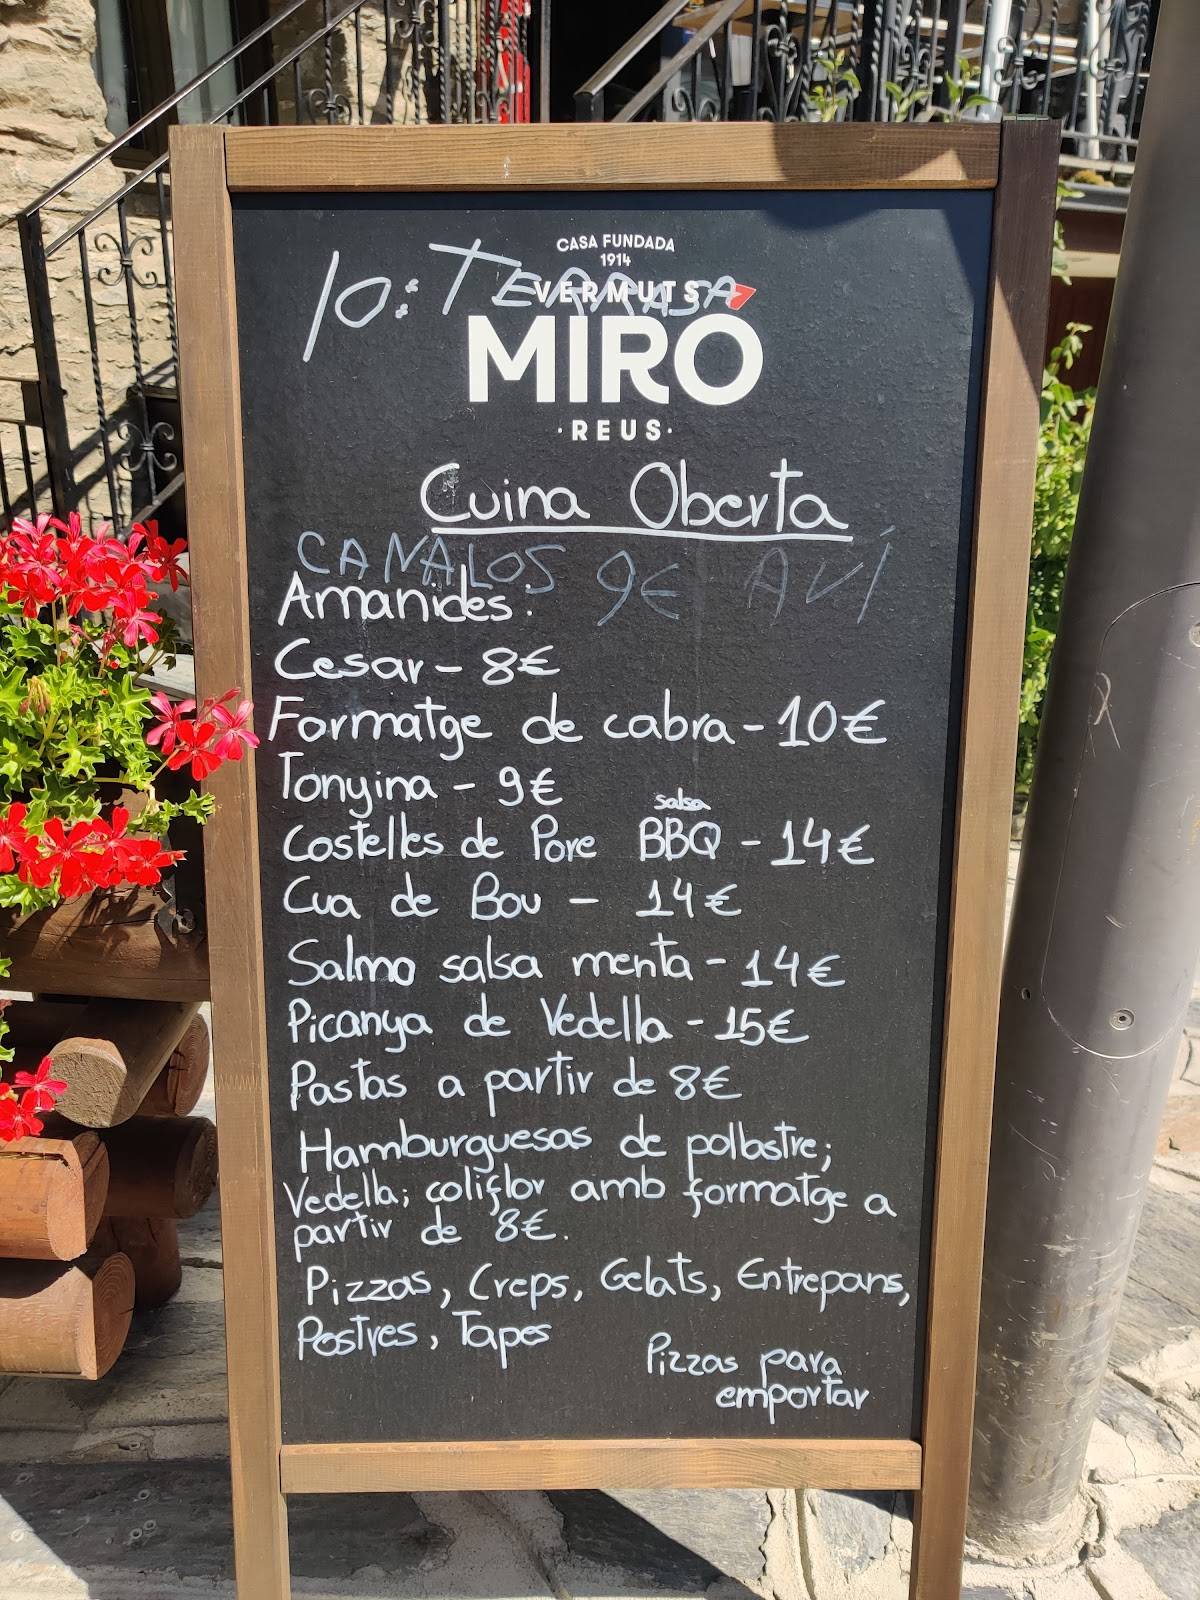 CASA FUNDADA
1914
10: TERRASA
VERMUTS
MIRÓ
·REUS·
Cuina Oberta
CANALOS 9€ AVÍ
Amanides:
Cesar - 8€
Formatge de cabra - 10€
Tonyina - 9€
salsa
Costelles de Porc BBQ - 14€
Cua de Bou - 14€
Salmo salsa menta - 14€
Picanya de Vedella - 15€
Pastas a partir de 8€
Hamburguesas de pollastre;
Vedella; coliflor amb formatge a
partir de 8€.
Pizzas, Creps, Gelats, Entrepans,
Postres, Tapes
Pizzas para
emportar